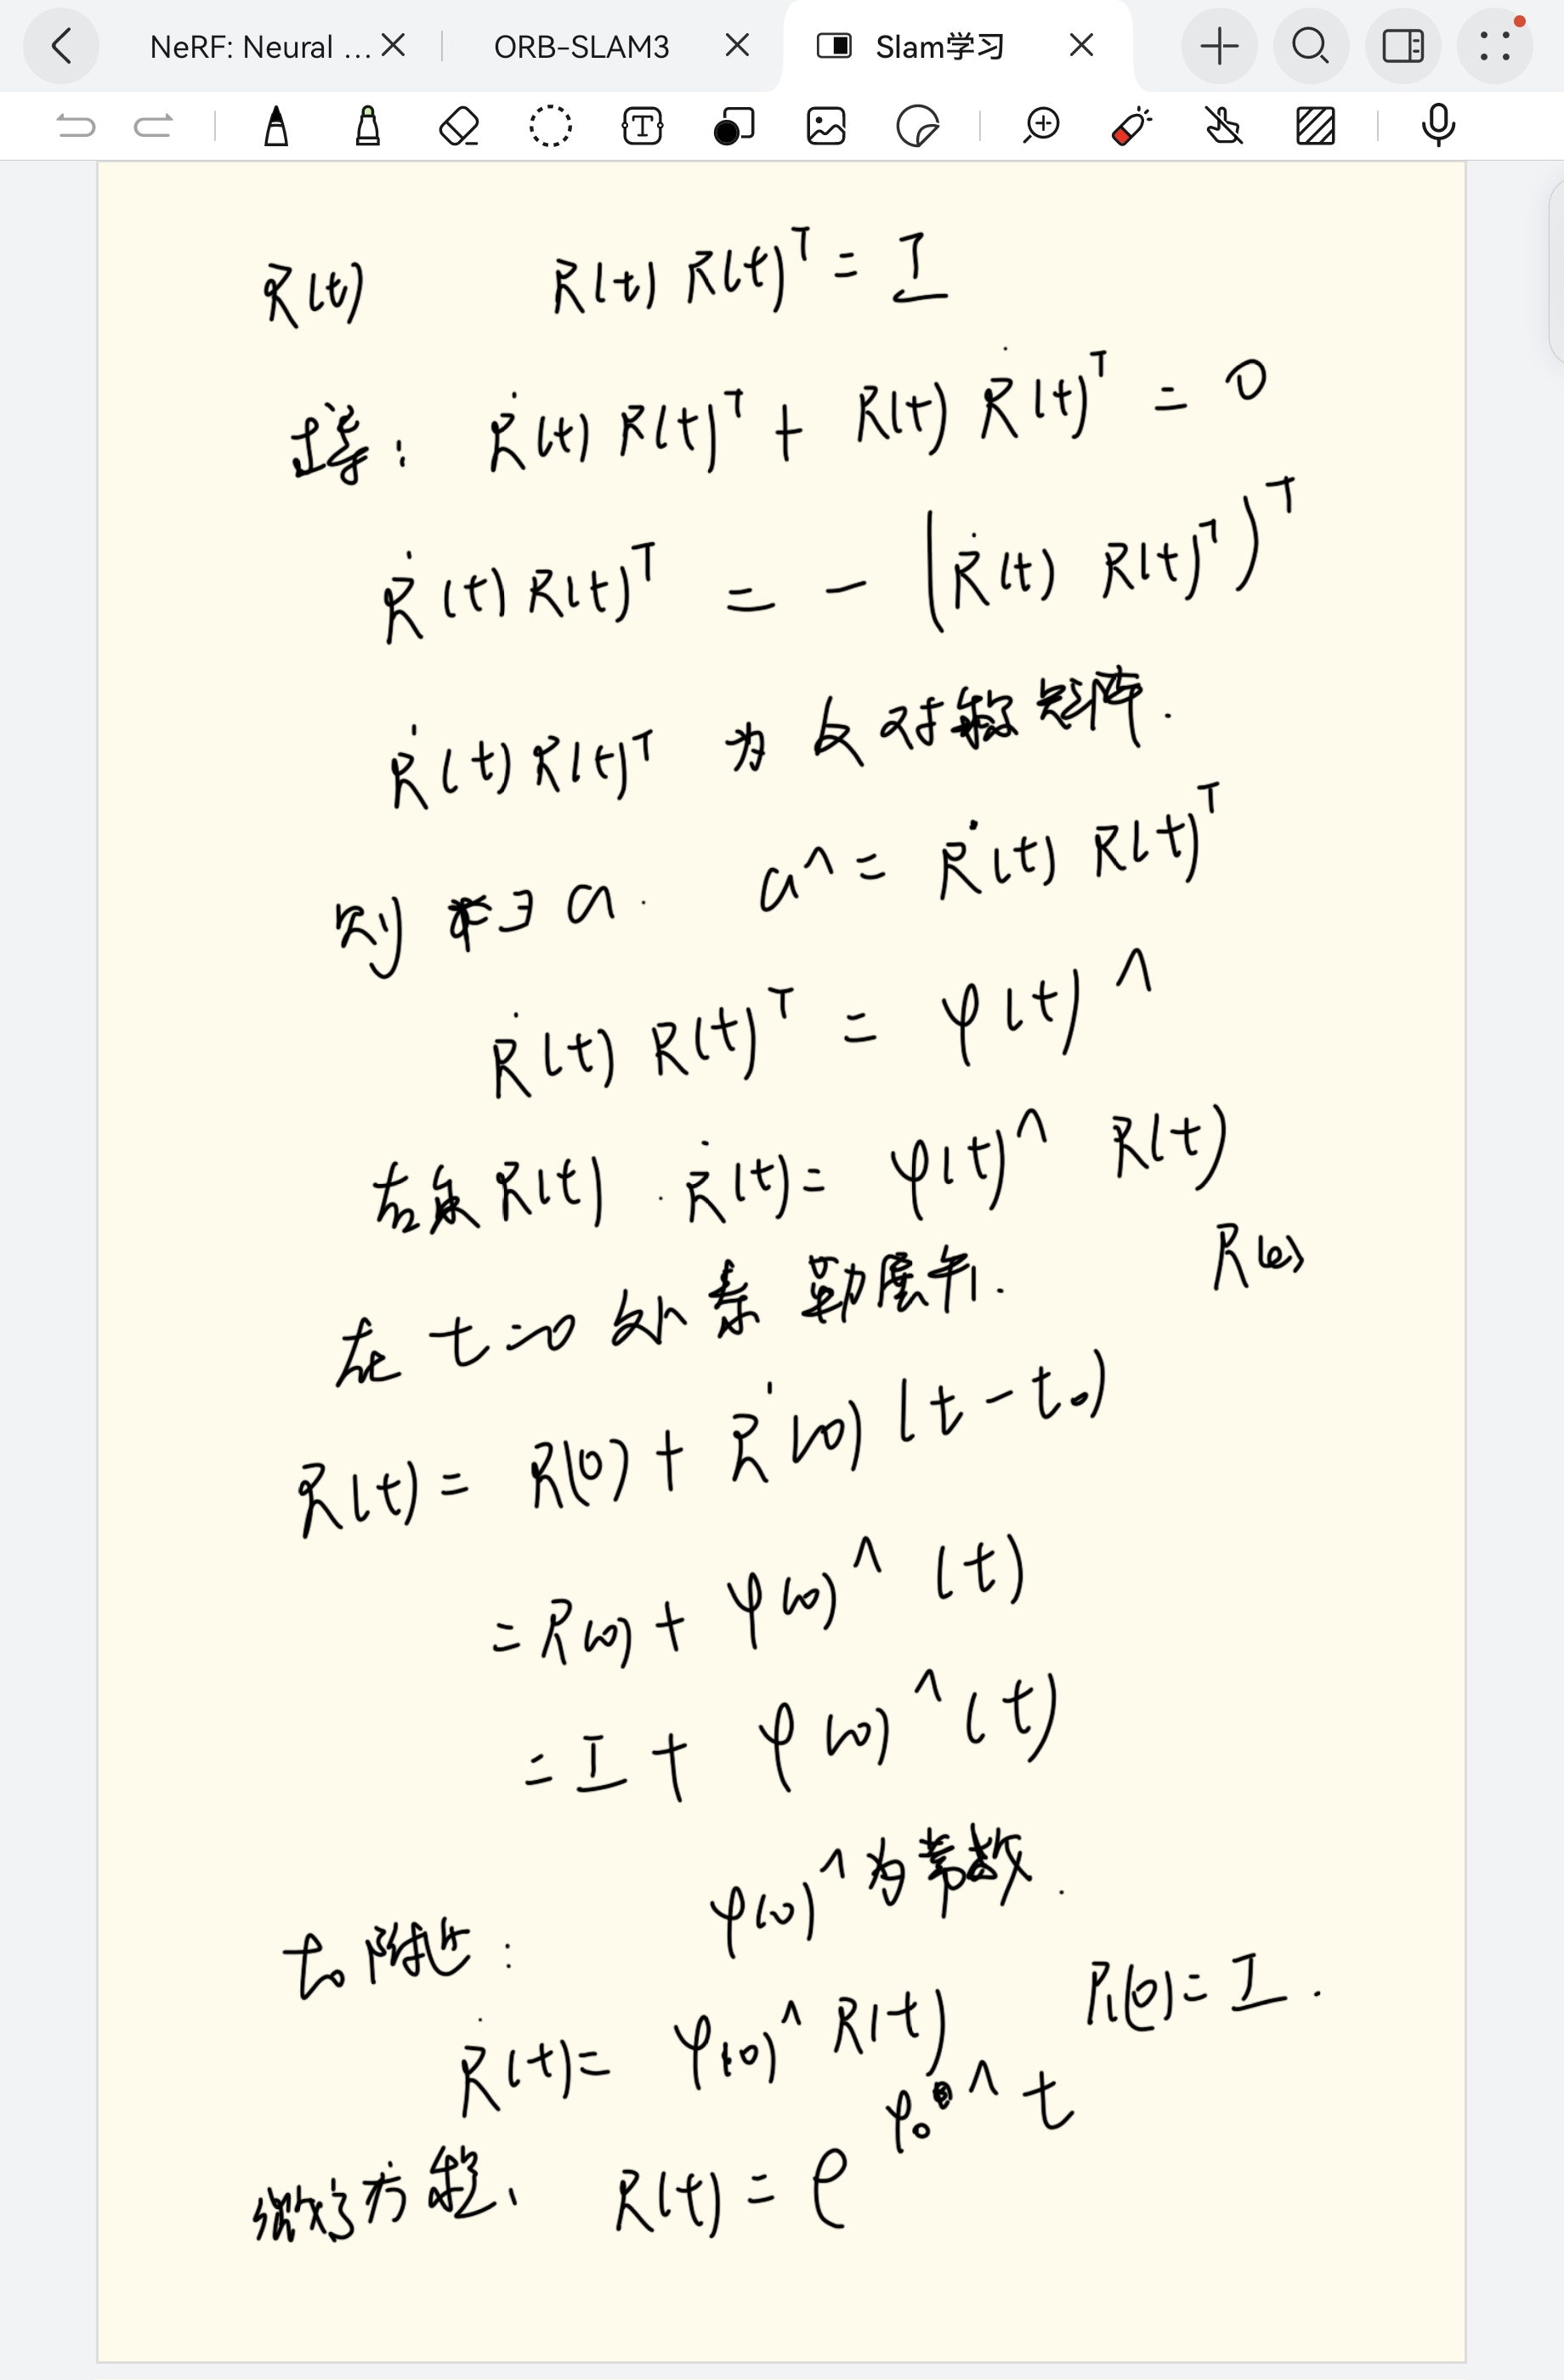 NeRF: Neural ... ORB-SLAM3 Slam学习
R(t) R(t) R(t)ᵀ = I
求导: Ṙ(t) R(t)ᵀ + R(t) Ṙ(t)ᵀ = 0
Ṙ(t) R(t)ᵀ = - (Ṙ(t) R(t)ᵀ)ᵀ
Ṙ(t) R(t)ᵀ 为反对称矩阵.
则 存在 a. a^ = Ṙ(t) R(t)ᵀ
Ṙ(t) R(t)ᵀ = φ(t)^
右乘 R(t). Ṙ(t) = φ(t)^ R(t)
R(0)
在 t=0 处泰勒展开.
R(t) = R(0) + Ṙ(0) (t - t₀)
= R(0) + φ(0)^ (t)
= I + φ(0)^ (t)
t₀附近: φ(0)^为常数.
Ṙ(t) = φ(0)^ R(t) R(0) = I.
微分方程、 R(t) = e^(φ₀^ t)